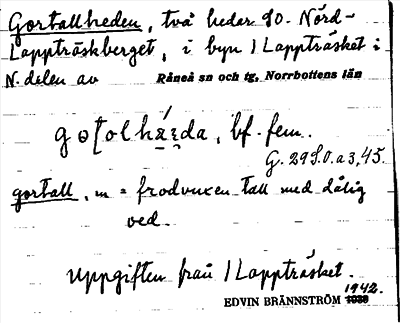 Gortallheden, två hedar SO. Nörd-
Lappträskberget, i byn / Lappträsket i
N. delen av Råneå sn och tg, Norrbottens län
bf. fem.
G. 29 S.O. a 3,45.
gortall, m = frodvuxen tall med dålig
ved.
Uppgiften från / Lappträsket.
1942.
EDVIN BRÄNNSTRÖM 1939